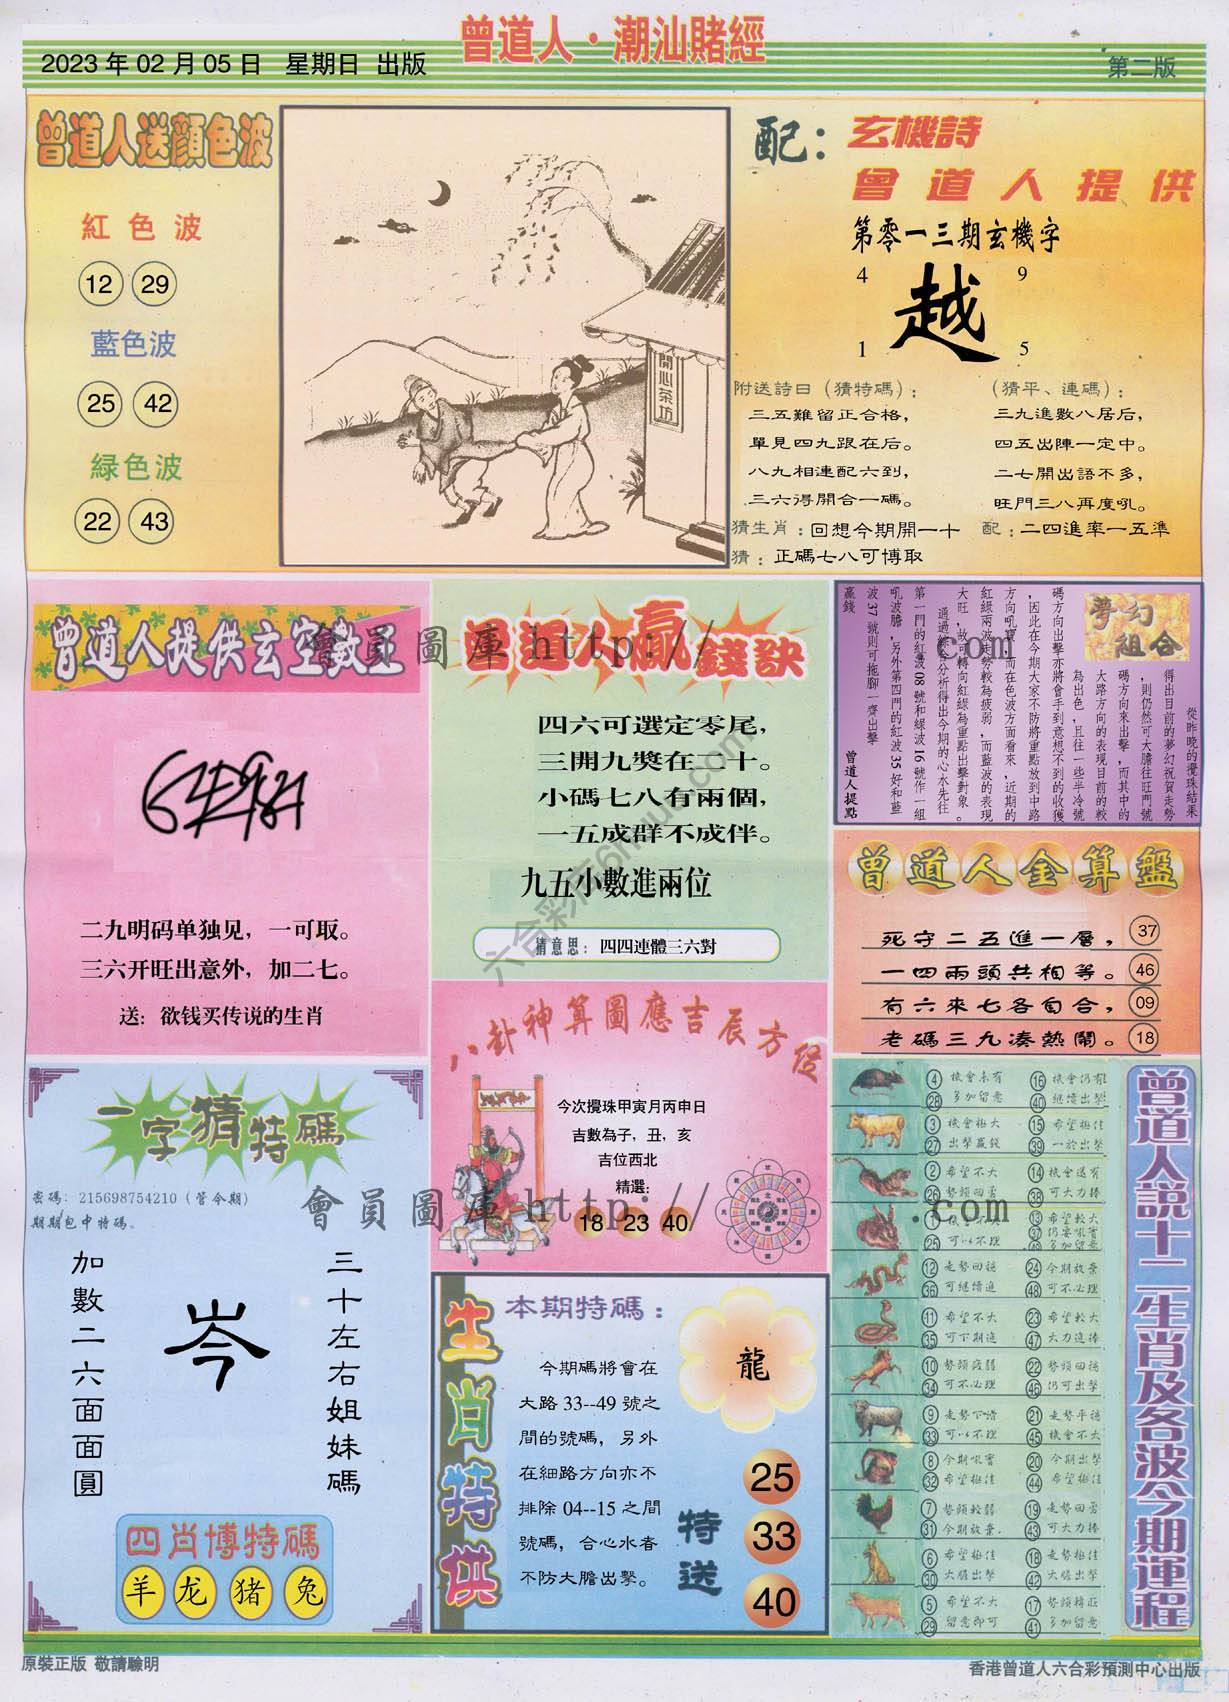 曾道人·潮汕賭經
2023 年 02 月 05 日 星期日 出版
第二版
曾道人送顔色波
紅色波
12 29
藍色波
25 42
緑色波
22 43
開心茶坊
配：玄機詩
曾道人提供
第零一三期玄機字
4 9
越
1 5
附送詩曰（猜特碼）：
三五難留正合格，
單見四九跟在后。
八九相連配六到，
三六得開合一碼。
（猜平、連碼）：
三九進數八居后，
四五出陣一定中。
二七開出語不多，
旺門三八再度吼。
猜生肖：回想今期開一十
配：二四進率一五準
猜：正碼七八可博取
曾道人提供玄空數
二九明码单独见，一可取。
三六开旺出意外，加二七。
送：欲钱买传说的生肖
曾道人贏錢訣
四六可選定零尾，
三開九獎在二十。
小碼七八有兩個，
一五成群不成伴。
九五小數進兩位
猜意思：四四連體三六對
夢幻組合
從昨晚的攪珠結果
得出目前的夢幻祝賀走勢
，則仍然可大膽往旺門號
碼方向來出擊，而其中的
大路方向的表現目前的較
為出色，且往一些半冷號
碼方向出擊亦將會手到意想不到的收獲
，因此在今期大家不防將重點放到中路
方向吼寶，而在色波方面看來，近期的
紅綠兩波走勢較為疲弱，而藍波的表現
大旺，故可轉向紅綠為重點出擊對象。
通過綜合分析得出今期的心水先往
第一門的紅波08號和綠波16號作一組
吼波膽，另外第四門的紅波35好和藍
波37號則可拖腳一齊出擊
贏錢
曾道人提點
曾道人金算盤
死守二五進一層，37
一四兩頭共相等。46
有六來七各自合，09
老碼三九凑熱鬧。18
八卦神算圖應吉辰方位
今次攪珠甲寅月丙申日
吉數為子，丑，亥
吉位西北
精選：
18 23 40
一字猜特碼
密碼：215698754210（管今期）
期期包中特碼。
三十左右姐妹碼
岑
加數二六面面圓
四肖博特碼
羊 龙 猪 兔
生肖特供
本期特碼：
今期碼將會在
大路 33--49 號之
間的號碼，另外
在細路方向亦不
排除 04--15 之間
號碼，合心水者
不防大膽出擊。
龍
特送
25
33
40
曾道人説十二生肖及各波今期運程
4 28 機會未有 多加留意
16 40 機會仍有 繼續出擊
3 27 機會極大 出擊贏錢
15 39 希望極佳 一於出擊
2 26 希望不大 勢頭回勇
14 38 機會還有 可大力捧
1 25 可以不理
13 37 49 希望較大 仍要吼實 多加留意
12 36 走勢回穩 可繼續進
24 48 今期放棄 可不必理
11 35 希望不大 可下期進
23 47 希望較大 大力追捧
10 34 勢頭疲弱 可不必理
22 46 勢頭回穩 仍可出擊
9 33 走勢下滑 可以不理
21 45 走勢平穩 機會不大
8 32 今期吼實 希望極佳
20 44 今期出擊 希望極佳
7 31 勢頭較弱 今期放棄.
19 43 走勢回勇 可大力捧
6 30 希望極佳 大膽出擊
18 42 走勢極佳 大膽出擊
5 29 希望不大 留意即可
17 41 勢頭轉旺 多加留意
原裝正版 敬請驗明
香港曾道人六合彩預測中心出版
會員圖庫 http:// .com
會員圖庫 http:// .com